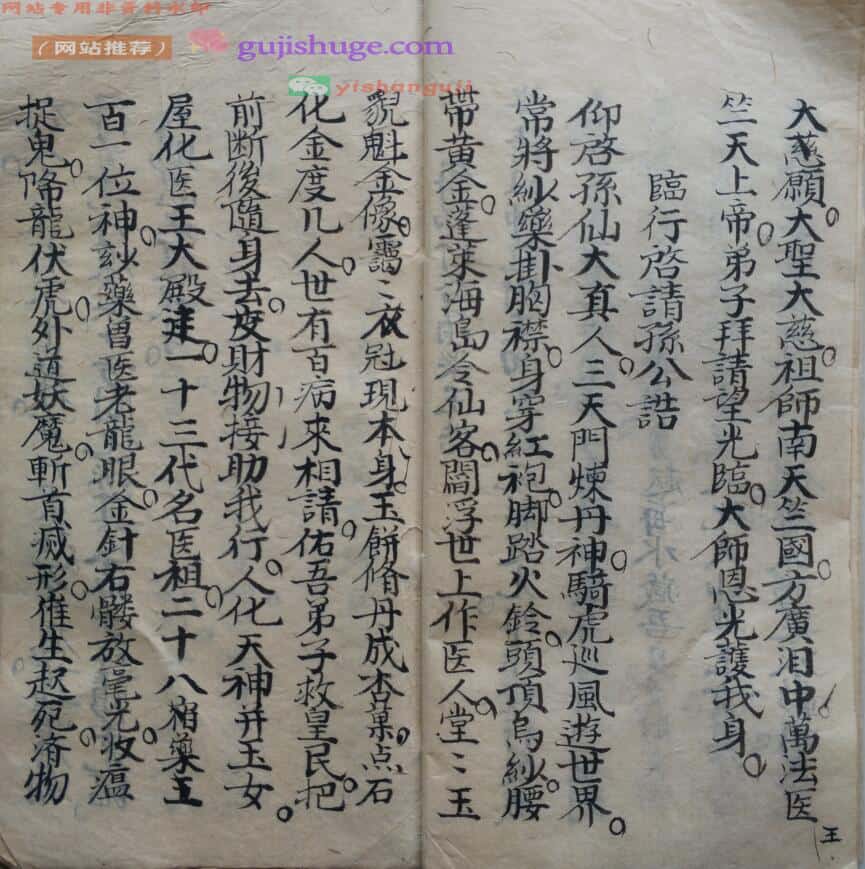 网站专用非资料水印
（网站推荐）
gujishuge.com
yishanguji
大慈願。大聖大慈。祖師南天竺國。方廣泪中萬法医
王
竺天上帝。弟子拜請望光臨。大師恩光護我身。
臨行啓請孫公誥
仰啓孫仙大真人。三天門煉丹神。騎虎巡風遊世界。
常將紗藥掛胸襟。身穿紅袍。脚踏火鈴。頭頂烏紗。腰
帶黃金。蓬萊海島令仙客。閻浮世上作医人。堂〻玉
貌魁金像。靄〻衣冠現本身。玉餅脩丹成杏菓。点石
化金度几人。世有百病來相請。佑吾弟子救皇民。把
前断後隨身去。皮財物接助我行。人化天神并玉女。
屋化医王大殿。連一十三代名医祖。二十八宿藥王
百一位神。玅藥曾医老龍眼。金針右髅放毫光。收瘟
捉鬼。降龍伏虎。外道妖魔。斬首滅形。催生起死。済物